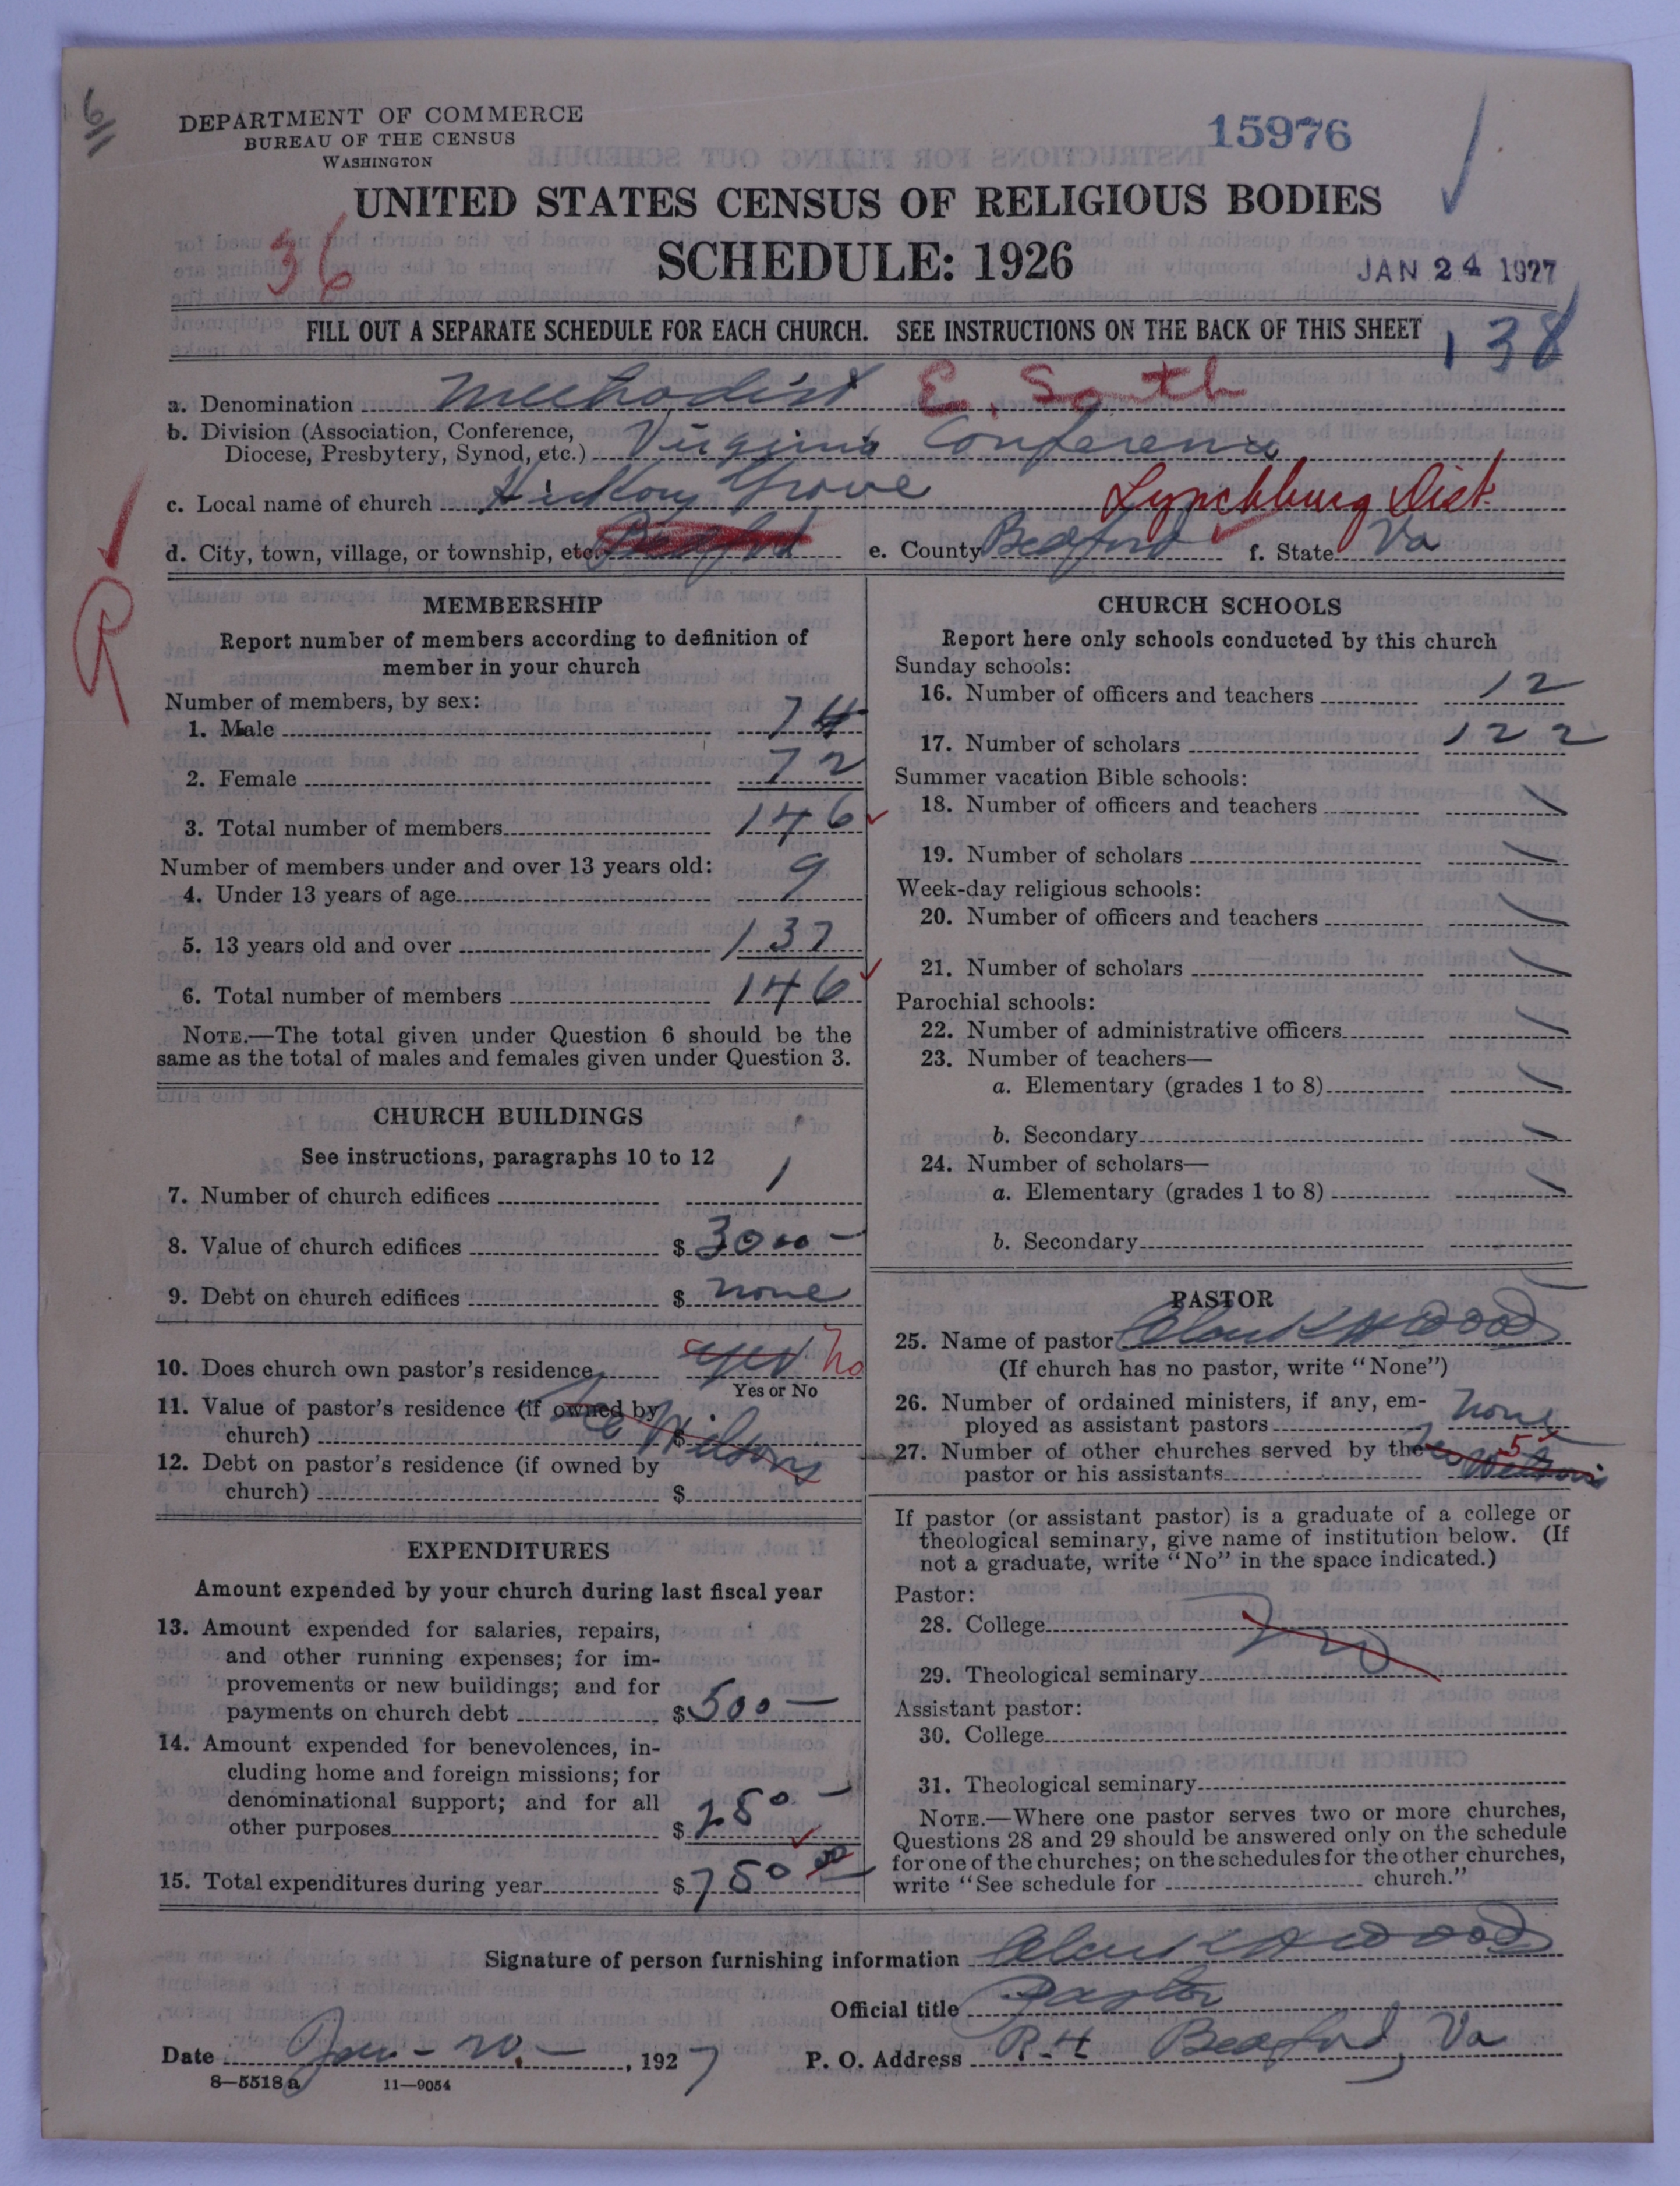 6
DEPARTMENT OF COMMERCE
BUREAU OF THE CENSUS
WASHINGTON
15976
UNITED STATES CENSUS OF RELIGIOUS BODIES
36
SCHEDULE: 1926
JAN 24 1927
FILL OUT A SEPARATE SCHEDULE FOR EACH CHURCH. SEE INSTRUCTIONS ON THE BACK OF THIS SHEET
138
a. Denomination Methodist E. South
b. Division (Association, Conference,
Diocese, Presbytery, Synod, etc.) Virginia Conference
c. Local name of church Hickory Grove Lynchburg Dist.
d. City, town, village, or township, etc. Bedford e. County Bedford f. State Va
R
MEMBERSHIP
Report number of members according to definition of
member in your church
Number of members, by sex:
1. Male 74
2. Female 72
3. Total number of members 146
Number of members under and over 13 years old:
4. Under 13 years of age 9
5. 13 years old and over 137
6. Total number of members 146
NOTE.—The total given under Question 6 should be the
same as the total of males and females given under Question 3.
CHURCH BUILDINGS
See instructions, paragraphs 10 to 12
7. Number of church edifices 1
8. Value of church edifices $ 3000 —
9. Debt on church edifices $ none
10. Does church own pastor's residence yes no
Yes or No
11. Value of pastor's residence (if owned by
church) $
12. Debt on pastor's residence (if owned by
church) $
EXPENDITURES
Amount expended by your church during last fiscal year
13. Amount expended for salaries, repairs,
and other running expenses; for im-
provements or new buildings; and for
payments on church debt $ 500 —
14. Amount expended for benevolences, in-
cluding home and foreign missions; for
denominational support; and for all
other purposes $ 250 —
15. Total expenditures during year $ 750 00
CHURCH SCHOOLS
Report here only schools conducted by this church
Sunday schools:
16. Number of officers and teachers 12
17. Number of scholars 122
Summer vacation Bible schools:
18. Number of officers and teachers
19. Number of scholars
Week-day religious schools:
20. Number of officers and teachers
21. Number of scholars
Parochial schools:
22. Number of administrative officers
23. Number of teachers—
a. Elementary (grades 1 to 8)
b. Secondary
24. Number of scholars—
a. Elementary (grades 1 to 8)
b. Secondary
PASTOR
25. Name of pastor Clark H Wood
(If church has no pastor, write "None")
26. Number of ordained ministers, if any, em-
ployed as assistant pastors none
27. Number of other churches served by the 5
pastor or his assistants
If pastor (or assistant pastor) is a graduate of a college or
theological seminary, give name of institution below. (If
not a graduate, write "No" in the space indicated.)
Pastor:
28. College
29. Theological seminary
Assistant pastor:
30. College
31. Theological seminary
NOTE.—Where one pastor serves two or more churches,
Questions 28 and 29 should be answered only on the schedule
for one of the churches; on the schedules for the other churches,
write "See schedule for church."
Signature of person furnishing information Clark H Wood
Official title Pastor
Date Jan - 20. -, 1927 P. O. Address R-4 Bedford, Va
8—5518 a 11—9054